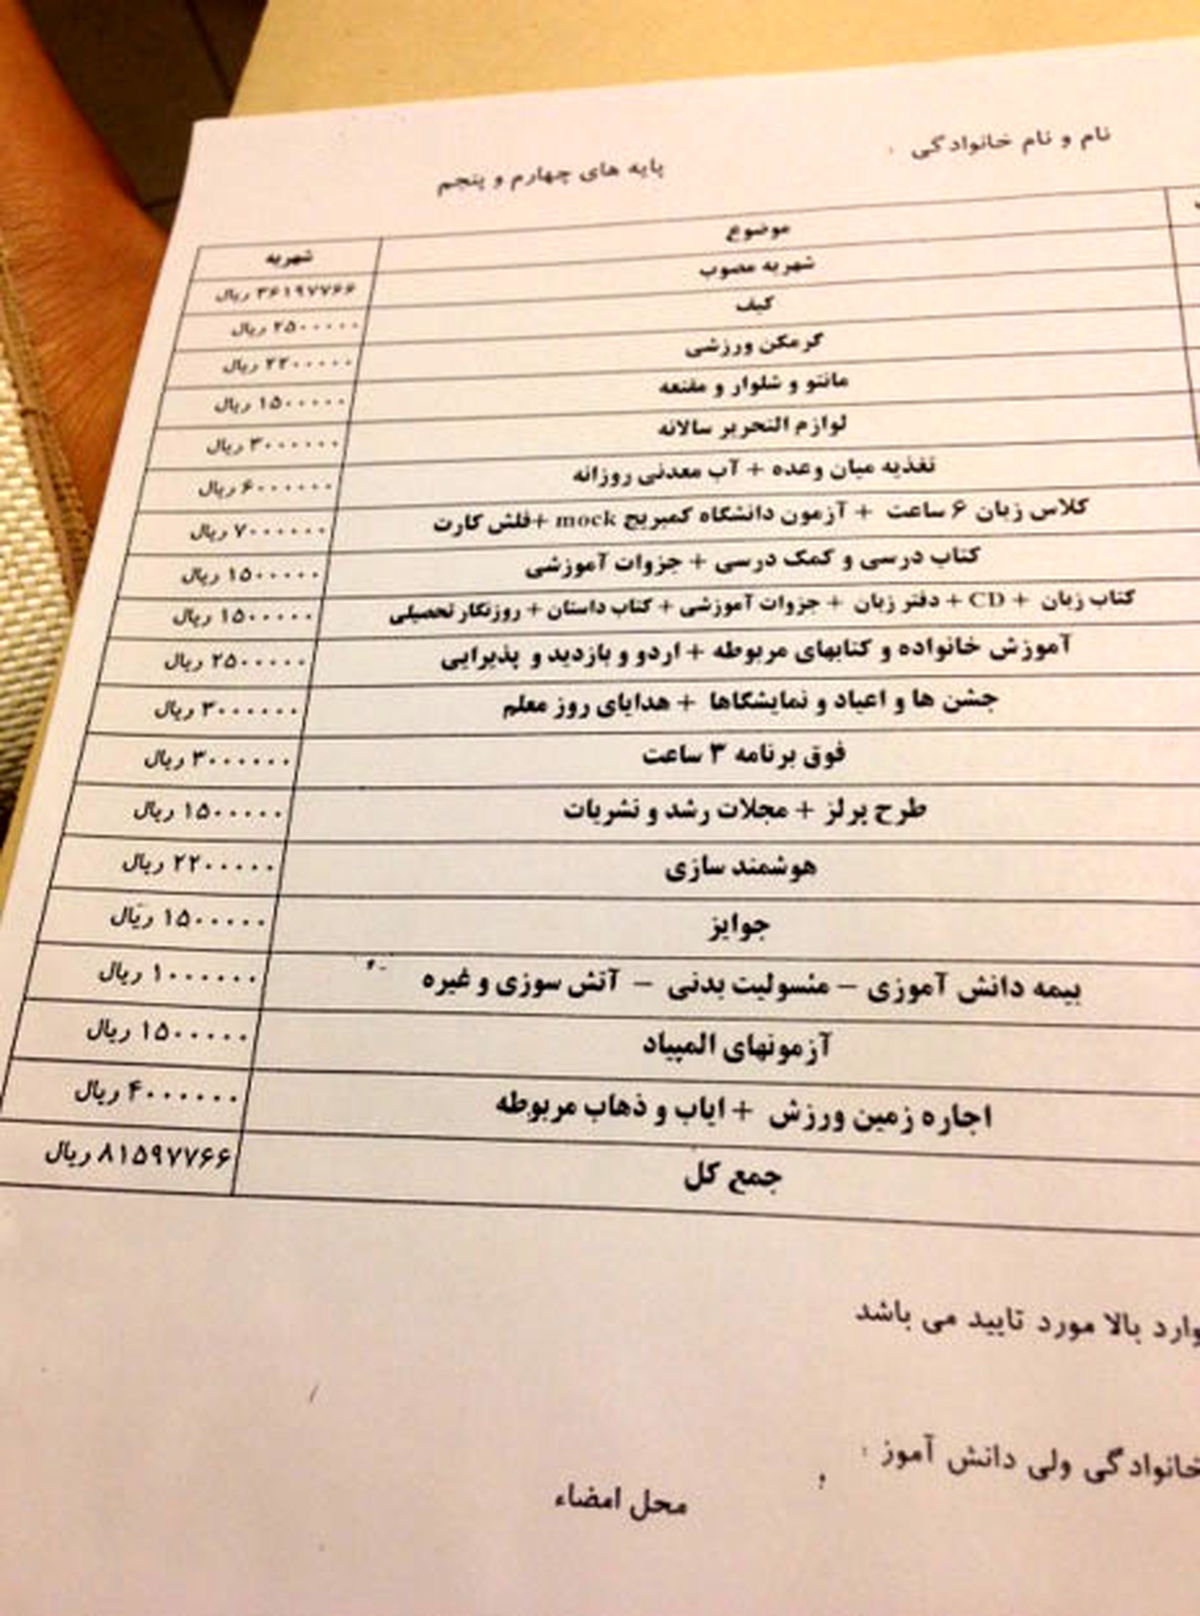 نام و نام خانوادگی
پایه های چهارم و پنجم
موضوع شهریه
شهریه مصوب ۳۶۱۹۷۷۶۶ ریال
کیف ۲۵۰۰۰۰۰ ریال
گرمکن ورزشی ۲۲۰۰۰۰۰ ریال
مانتو و شلوار و مقنعه ۱۵۰۰۰۰۰ ریال
لوازم التحریر سالانه ۳۰۰۰۰۰۰ ریال
تغذیه میان وعده + آب معدنی روزانه ۶۰۰۰۰۰۰ ریال
کلاس زبان ۶ ساعت + آزمون دانشگاه کمبریج mock +فلش کارت ۷۰۰۰۰۰۰ ریال
کتاب درسی و کمک درسی + جزوات آموزشی ۱۵۰۰۰۰۰ ریال
کتاب زبان + CD + دفتر زبان + جزوات آموزشی + کتاب داستان + روزنگار تحصیلی ۱۵۰۰۰۰۰ ریال
آموزش خانواده و کتابهای مربوطه + اردو و بازدید و پذیرایی ۲۵۰۰۰۰۰ ریال
جشن ها و اعیاد و نمایشگاها + هدایای روز معلم ۳۰۰۰۰۰۰ ریال
فوق برنامه ۳ ساعت ۳۰۰۰۰۰۰ ریال
طرح پرلز + مجلات رشد و نشریات ۱۵۰۰۰۰۰ ریال
هوشمند سازی ۲۲۰۰۰۰۰ ریال
جوایز ۱۵۰۰۰۰۰ ریال
بیمه دانش آموزی – مئسولیت بدنی – آتش سوزی و غیره ۱۰۰۰۰۰۰ ریال
آزمونهای المپیاد ۱۵۰۰۰۰۰ ریال
اجاره زمین ورزش + ایاب و ذهاب مربوطه ۴۰۰۰۰۰۰ ریال
جمع کل ۸۱۵۹۷۷۶۶ ریال
وارد بالا مورد تایید می باشد
خانوادگی ولی دانش آموز :
محل امضاء